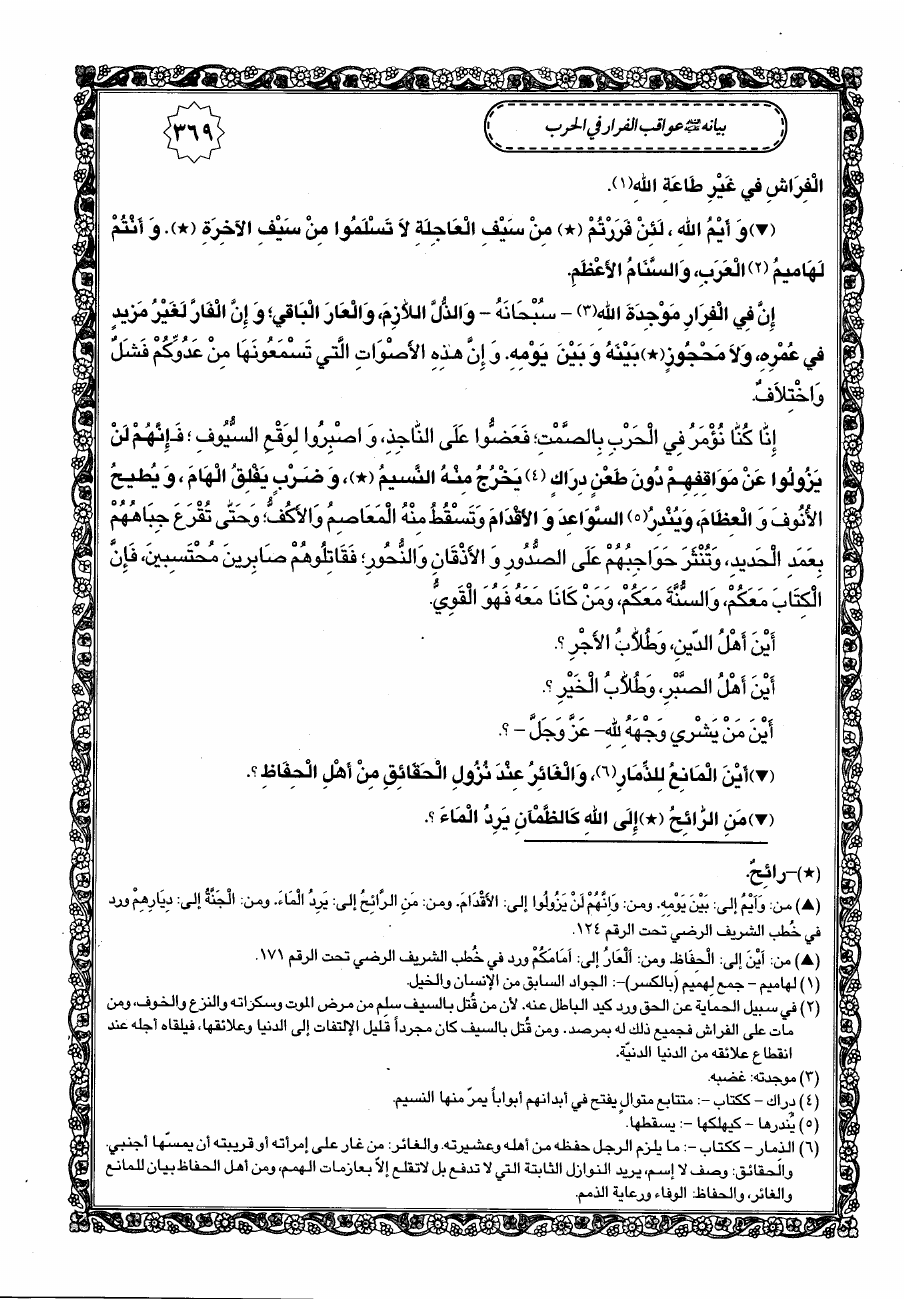 بيانه ﷺ عواقب الفرار في الحرب
٣٦٩
الْفِرَاشِ في غَيْرِ طَاعَةِ اللهِ(١).
(▼)وَ أَيْمُ اللهِ ، لَئِنْ فَرَرْتُمْ (★) مِنْ سَيْفِ الْعَاجِلَةِ لاَ تَسْلَمُوا مِنْ سَيْفِ الآخِرَةِ (★). وَ أَنْتُمْ
لَهَامِيمُ (٢) الْعَرَبِ، وَالسَّنَامُ الأَعْظَمِ.
إِنَّ في الْفِرَارِ مَوْجِدَةَ اللهِ(٣) – سُبْحَانَهُ – وَالذُّلَّ اللاَّزِمَ، وَالْعَارَ الْبَاقي؛ وَ إِنَّ الْفَارَّ لَغَيْرُ مَزيدٍ
في عُمْرِهِ، وَلاَ مَحْجُوزٍ(★)بَيْنَهُ وَ بَيْنَ يَوْمِهِ. وَ إِنَّ هٰذِهِ الأَصْوَاتِ الَّتي تَسْمَعُونَهَا مِنْ عَدُوِّكُمْ فَشَلٌ
وَاخْتِلاَفٌ.
إِنَّا كُنَّا نُؤْمَرُ في الْحَرْبِ بِالصَّمْتِ؛ فَعَضُّوا عَلَى النَّاجِذِ، وَ اصْبِرُوا لِوَقْعِ السُّيُوفِ ؛ فَإِنَّهُمْ لَنْ
يَزُولُوا عَنْ مَوَاقِفِهِمْ دُونَ طَعْنٍ دِرَاكٍ (٤) يَخْرُجُ مِنْهُ النَّسيمُ (★)، وَ ضَرْبٍ يَفْلِقُ الْهَامَ ، وَ يُطيحُ
الأُنُوفَ وَ الْعِظَامَ، وَيُنْدِرُ(٥) السَّوَاعِدَ وَ الأَقْدَامَ وَتَسْقُطُ مِنْهُ الْمَعَاصِمُ وَالأَكُفُّ؛ وَحَتَّى تُقْرَعَ جِبَاهُهُمْ
بِعَمَدِ الْحَديدِ، وَتُنْثَرَ حَوَاجِبُهُمْ عَلَى الصُّدُورِ وَ الأَذْقَانِ وَالنُّحُورِ؛ فَقَاتِلُوهُمْ صَابِرينَ مُحْتَسِبينَ، فَإِنَّ
الْكِتَابَ مَعَكُمْ، وَالسُّنَّةَ مَعَكُمْ، وَمَنْ كَانَا مَعَهُ فَهُوَ الْقَوِيُّ.
أَيْنَ أَهْلُ الدّينِ، وَطُلاَّبُ الأَجْرِ ؟.
أَيْنَ أَهْلُ الصَّبْرِ، وَطُلاَّبُ الْخَيْرِ ؟.
أَيْنَ مَنْ يَشْري وَجْهَهُ لِلهِ– عَزَّ وَجَلَّ – ؟.
(▼)أَيْنَ الْمَانِعُ لِلذِّمَارِ (٦)، وَالْغَائِرُ عِنْدَ نُزُولِ الْحَقَائِقِ مِنْ أَهْلِ الْحِفَاظِ ؟.
(▼)مَنِ الرَّائِحُ (★)إِلَى اللهِ كَالظَّمْآنِ يَرِدُ الْمَاءَ ؟.
(★)–رائِحٌ.
(▲) من: وَآيْمُ إلى: بَيْنَ يَوْمِهِ. ومن: وَإِنَّهُمْ لَنْ يَزُولُوا إلى: الأَقْدَامَ. ومن: مَنِ الرَّائِحُ إلى: يَرِدُ الْمَاءَ. ومن: الْجَنَّةُ إلى: دِيَارِهِمْ ورد
في خُطب الشريف الرضي تحت الرقم ١٢٤.
(▲) من: أَيْنَ إلى: الْحِفَاظِ. ومن: أَلْعَارُ إلى: أَمَامَكُمْ ورد في خُطب الشريف الرضي تحت الرقم ١٧١.
(١) لهاميم – جمع لهميم (بالكسر)–: الجواد السابق من الإنسان والخيل.
(٢) في سبيل الحماية عن الحق ورد كيد الباطل عنه. لأن من قُتل بالسيف سلِم من مرض الموت وسكراته والنزع والخوف، ومن
مات على الفراش فجميع ذلك له بمرصد. ومن قُتل بالسيف كان مجرداً قليل الإلتفات إلى الدنيا وعلائقها، فيلقاه أجله عند
انقطاع علائقه من الدنيا الدنيّة.
(٣) موجدته: غضبه.
(٤) دراك – ككتاب –: متتابع متوالٍ يفتح في أبدانهم أبواباً يمرّ منها النسيم.
(٥) يُندرها – كيهلكها –: يسقطها.
(٦) الذمار – ككتاب –: ما يلزم الرجل حفظه من أهله وعشيرته. والغائر: من غار على إمرأته أو قريبته أن يمسّها أجنبي.
والحقائق: وصف لا إسم، يريد النوازل الثابتة التي لا تدفع بل لاتقلع إلاّ بعازمات الهمم، ومن أهل الحفاظ بيان للمانع
والغائر، والحفاظ: الوفاء ورعاية الذمم.